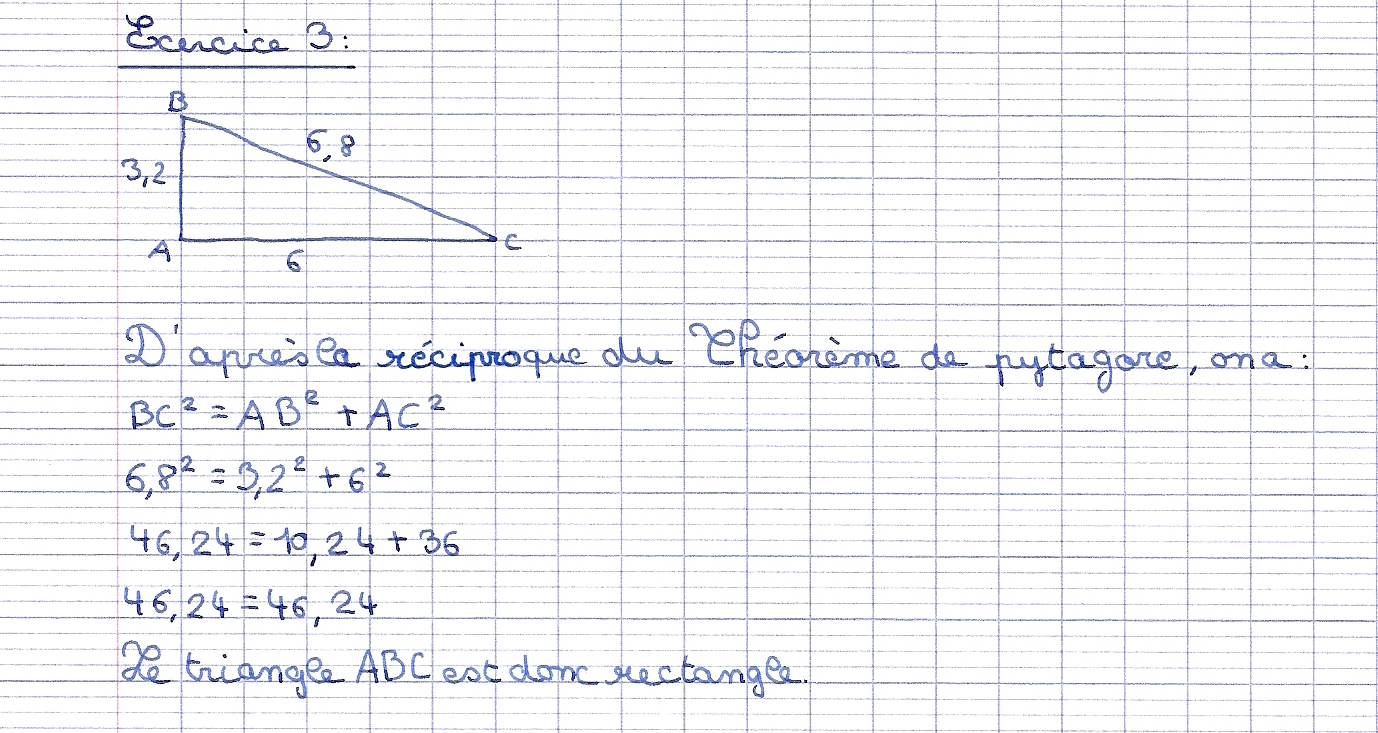 Exercice 3:
B
6,8
3,2
A
C
6
D'après la réciproque du Théorème de pytagore, on a :
BC² = AB² + AC²
6,8² = 3,2² + 6²
46,24 = 10,24 + 36
46,24 = 46,24
Le triangle ABC est donc rectangle.